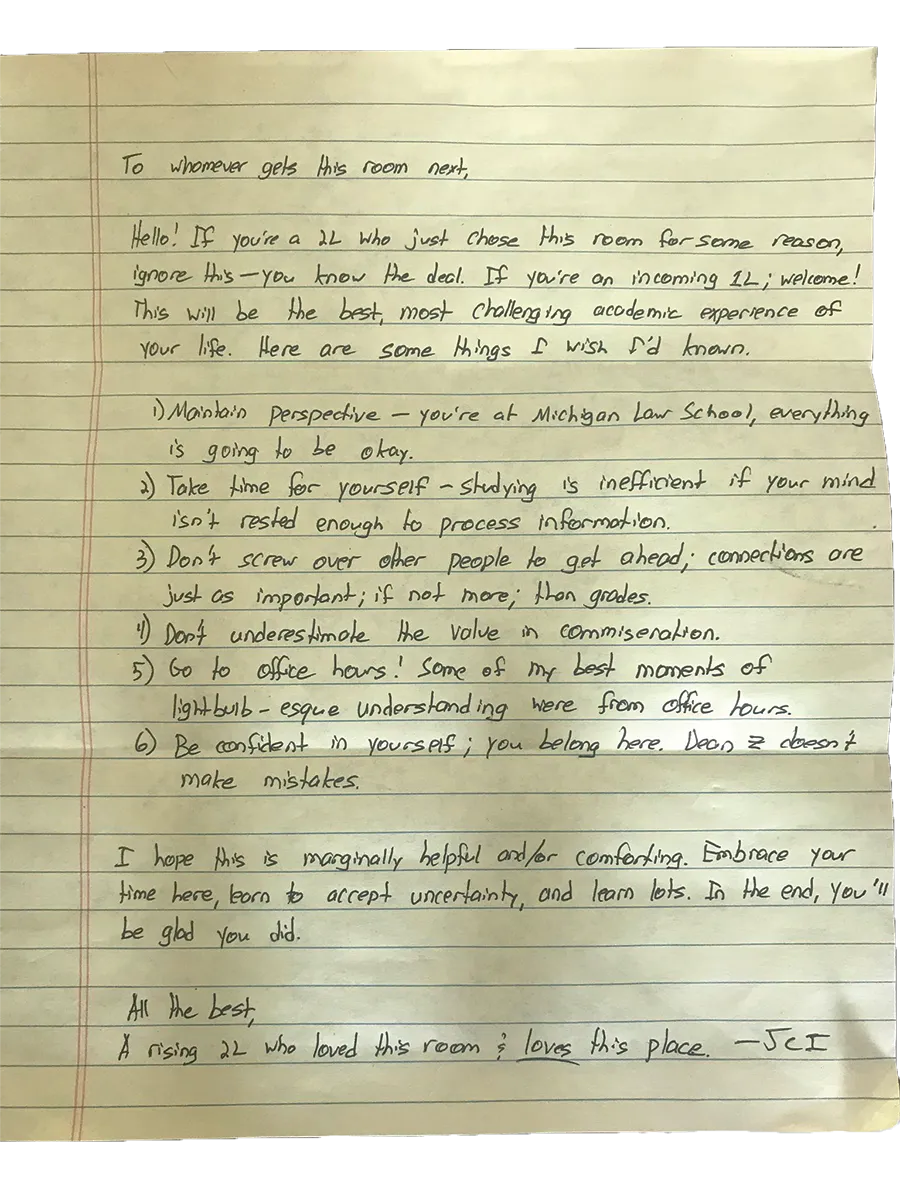 To whomever gets this room next,
Hello! If you're a 2L who just chose this room for some reason,
ignore this — you know the deal. If you're an incoming 1L; welcome!
This will be the best, most challenging academic experience of
your life. Here are some things I wish I'd known.
1) Maintain perspective — you're at Michigan Law School, everything
is going to be okay.
2) Take time for yourself – studying is inefficient if your mind
isn't rested enough to process information.
3) Don't screw over other people to get ahead; connections are
just as important; if not more; than grades.
4) Don't underestimate the value in commiseration.
5) Go to office hours! Some of my best moments of
lightbulb-esque understanding were from office hours.
6) Be confident in yourself; you belong here. Dean Z doesn't
make mistakes.
I hope this is marginally helpful and/or comforting. Embrace your
time here, learn to accept uncertainty, and learn lots. In the end, you'll
be glad you did.
All the best,
A rising 2L who loved this room & loves this place. —JCI